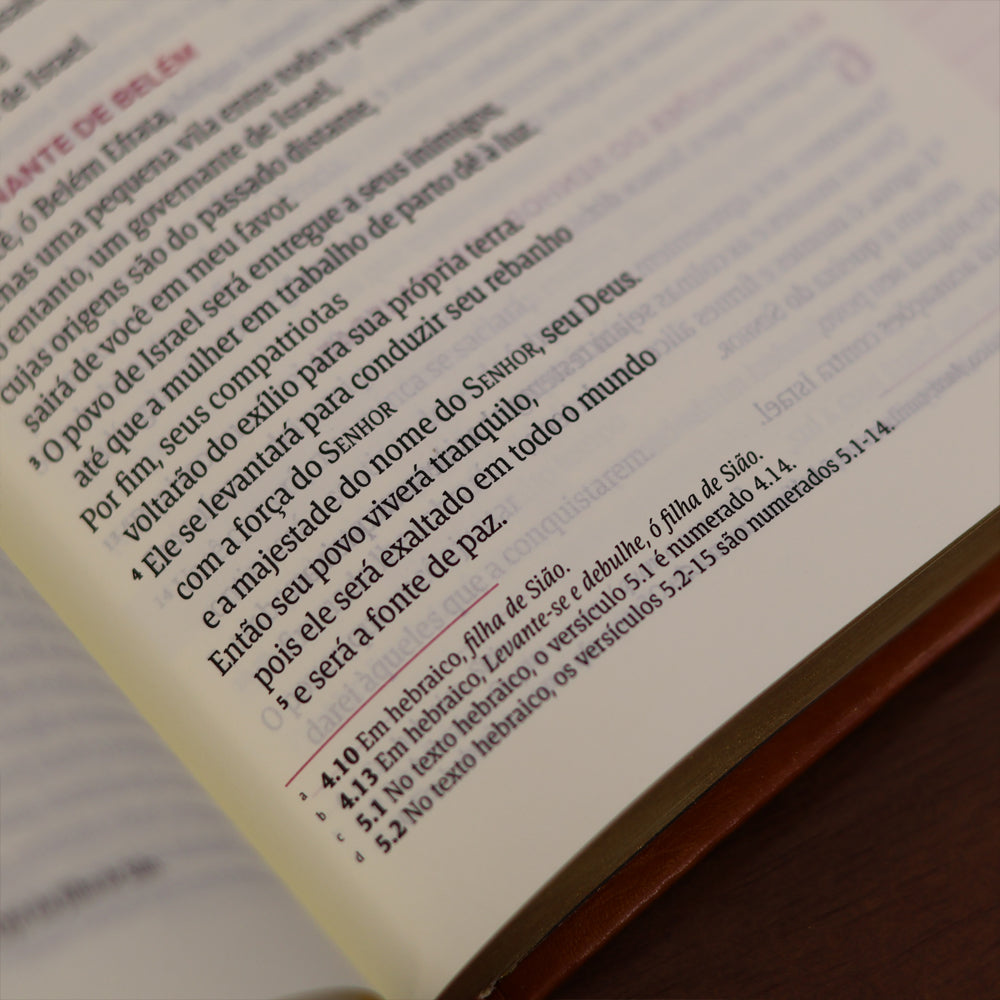 de Israel.
NANTE DE BELÉM
ê, ó Belém Efrata,
enas uma pequena vila entre todo o povo
o entanto, um governante de Israel,
cujas origens são do passado distante,
sairá de você em meu favor.
3 O povo de Israel será entregue a seus inimigos,
até que a mulher em trabalho de parto dê à luz.
Por fim, seus compatriotas
voltarão do exílio para sua própria terra.
4 Ele se levantará para conduzir seu rebanho
com a força do SENHOR
e a majestade do nome do SENHOR, seu Deus.
Então seu povo viverá tranquilo,
pois ele será exaltado em todo o mundo
5 e será a fonte de paz.
a 4.10 Em hebraico, filha de Sião.
b 4.13 Em hebraico, Levante-se e debulhe, ó filha de Sião.
c 5.1 No texto hebraico, o versículo 5.1 é numerado 4.14.
d 5.2 No texto hebraico, os versículos 5.2-15 são numerados 5.1-14.